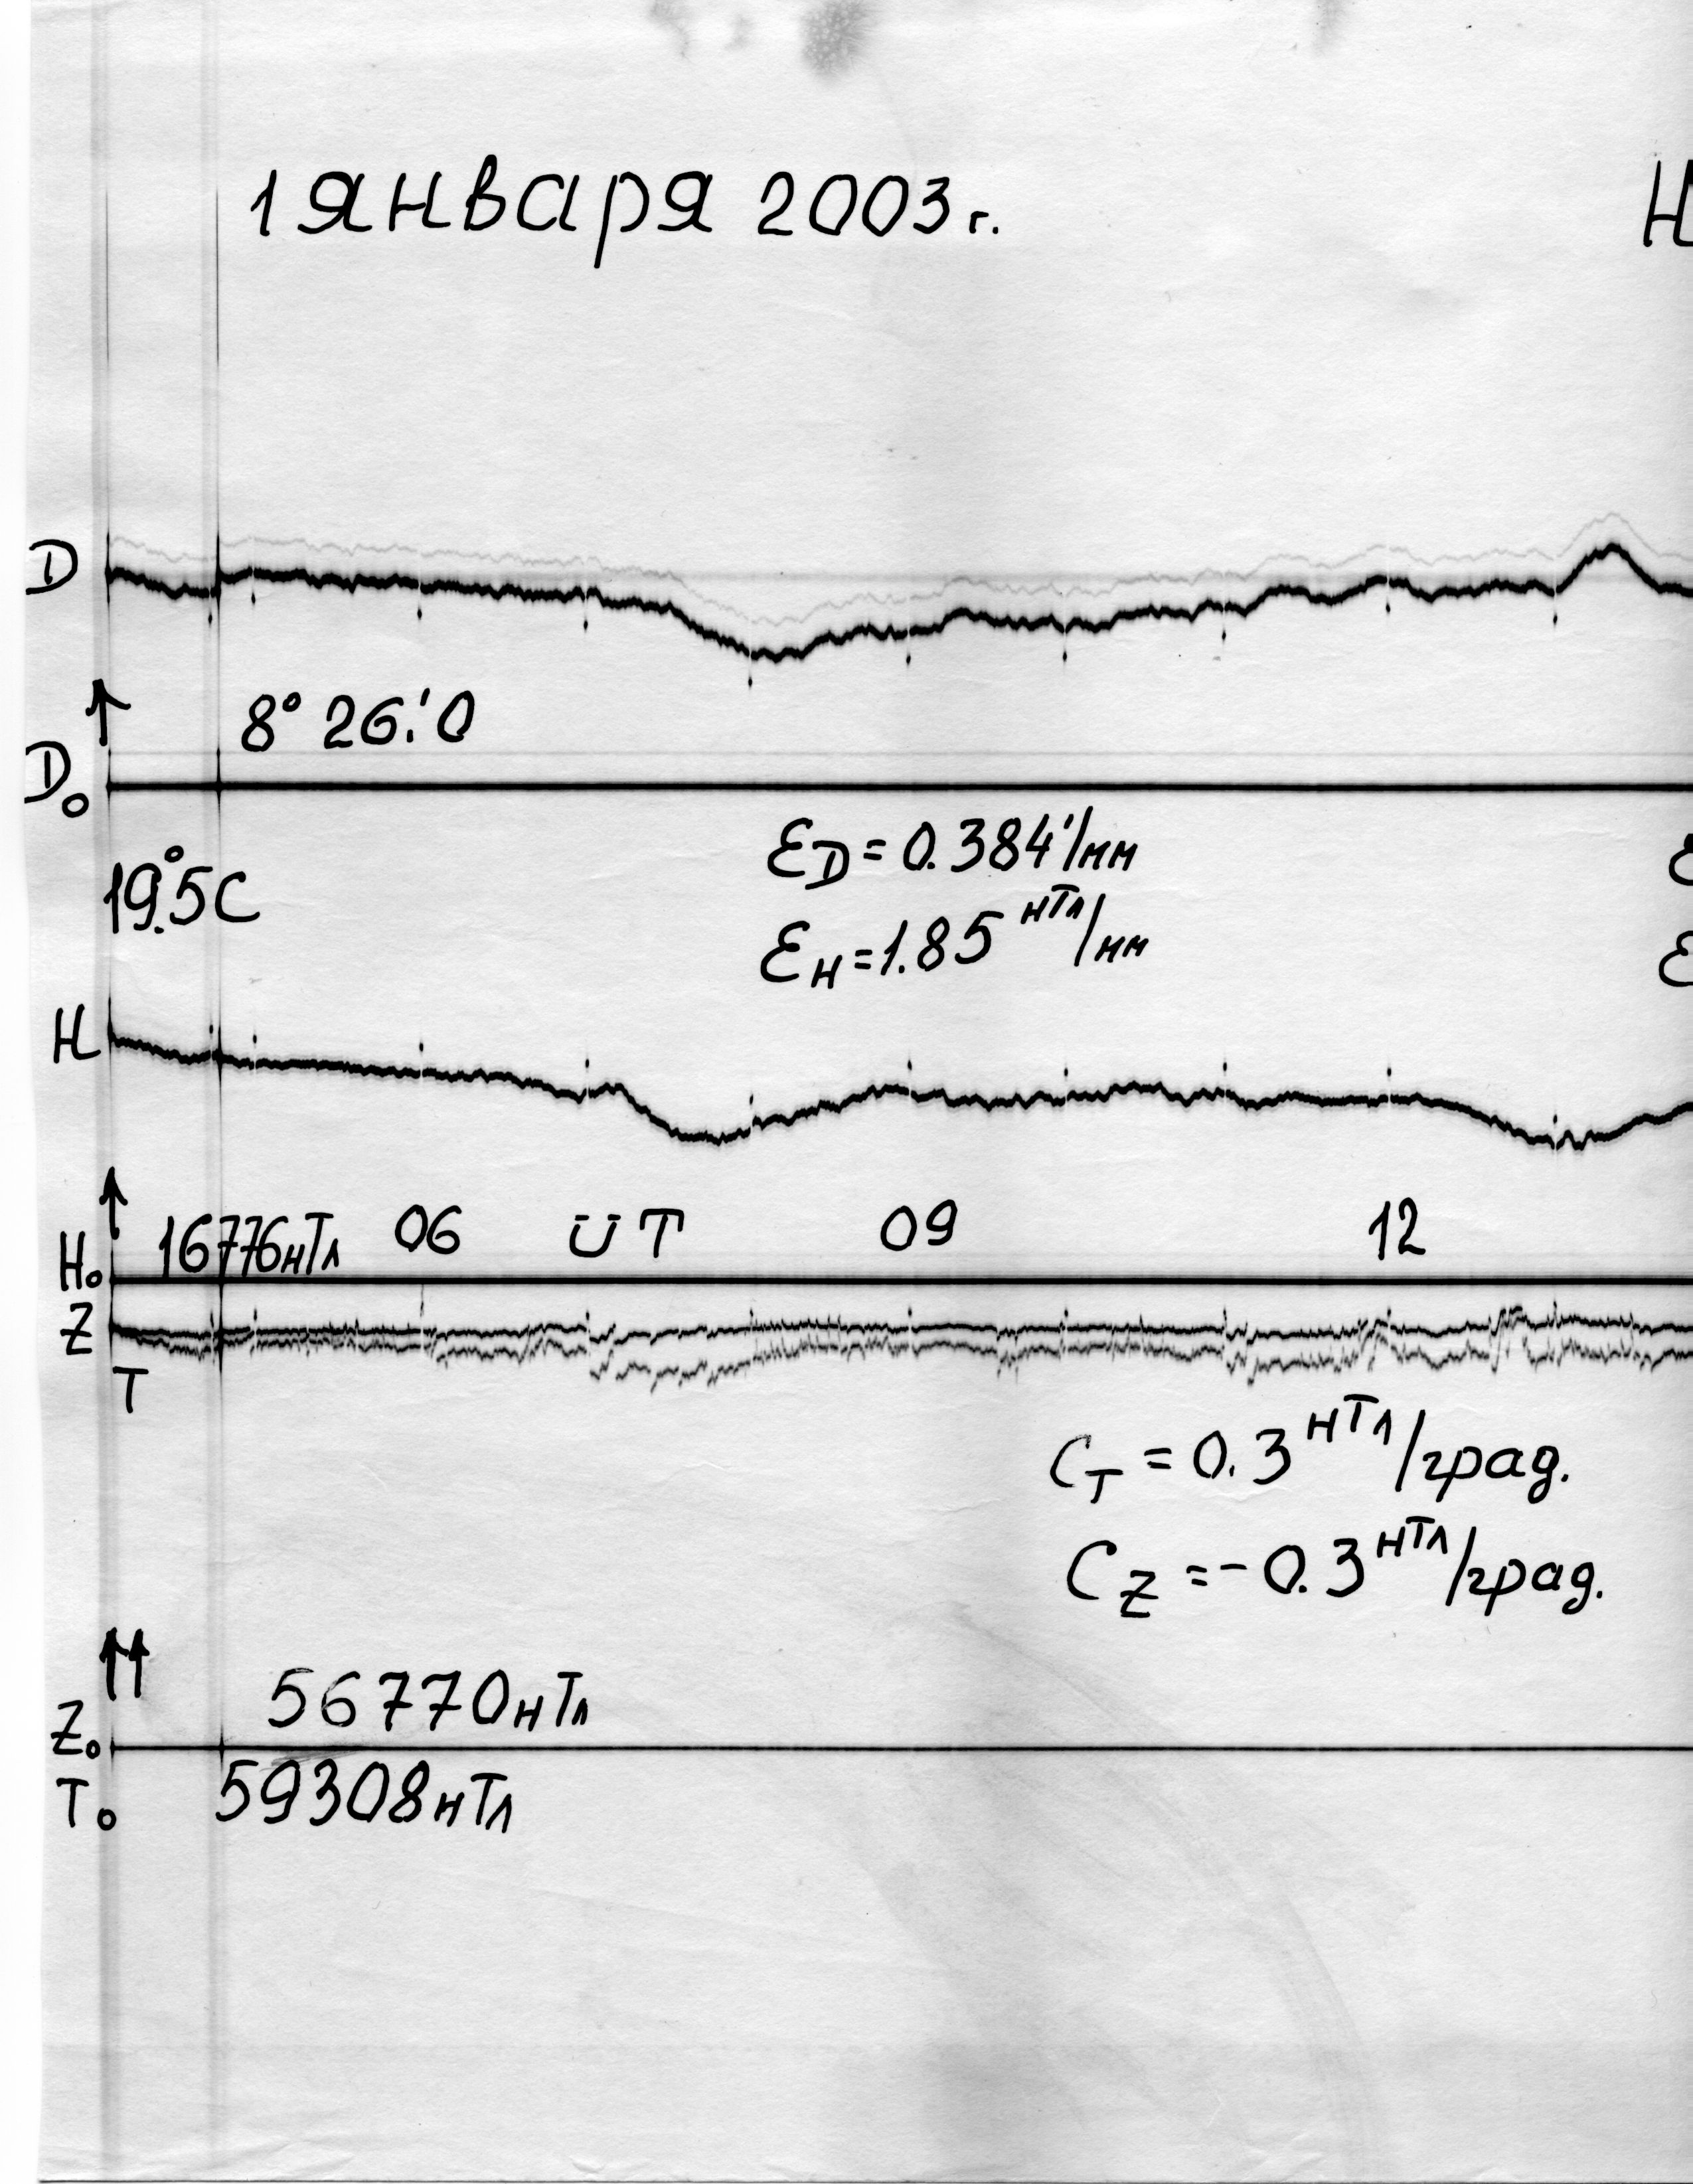 1 января 2003 г. Н
D
8° 26.'0
D₀
Ɛ_D = 0.384'/мм Ɛ
19.°5С
Ɛ_H = 1.85 нТл/мм Ɛ
H
16776нТл 06 UT 09 12
H₀
Z
T
C_T = 0.3 нТл/град.
C_Z = -0.3 нТл/град.
56770нТл
Z₀
T₀ 59308нТл